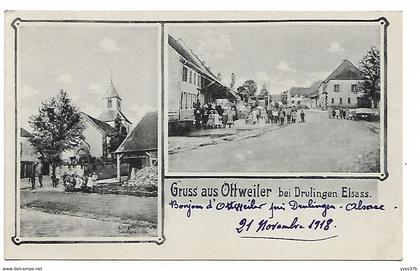 Gruss aus Ottweiler bei Drulingen Elsass.
Bonjour d'Ottweiler près Drulingen - Alsace
21 Novembre 1918.
yves27b